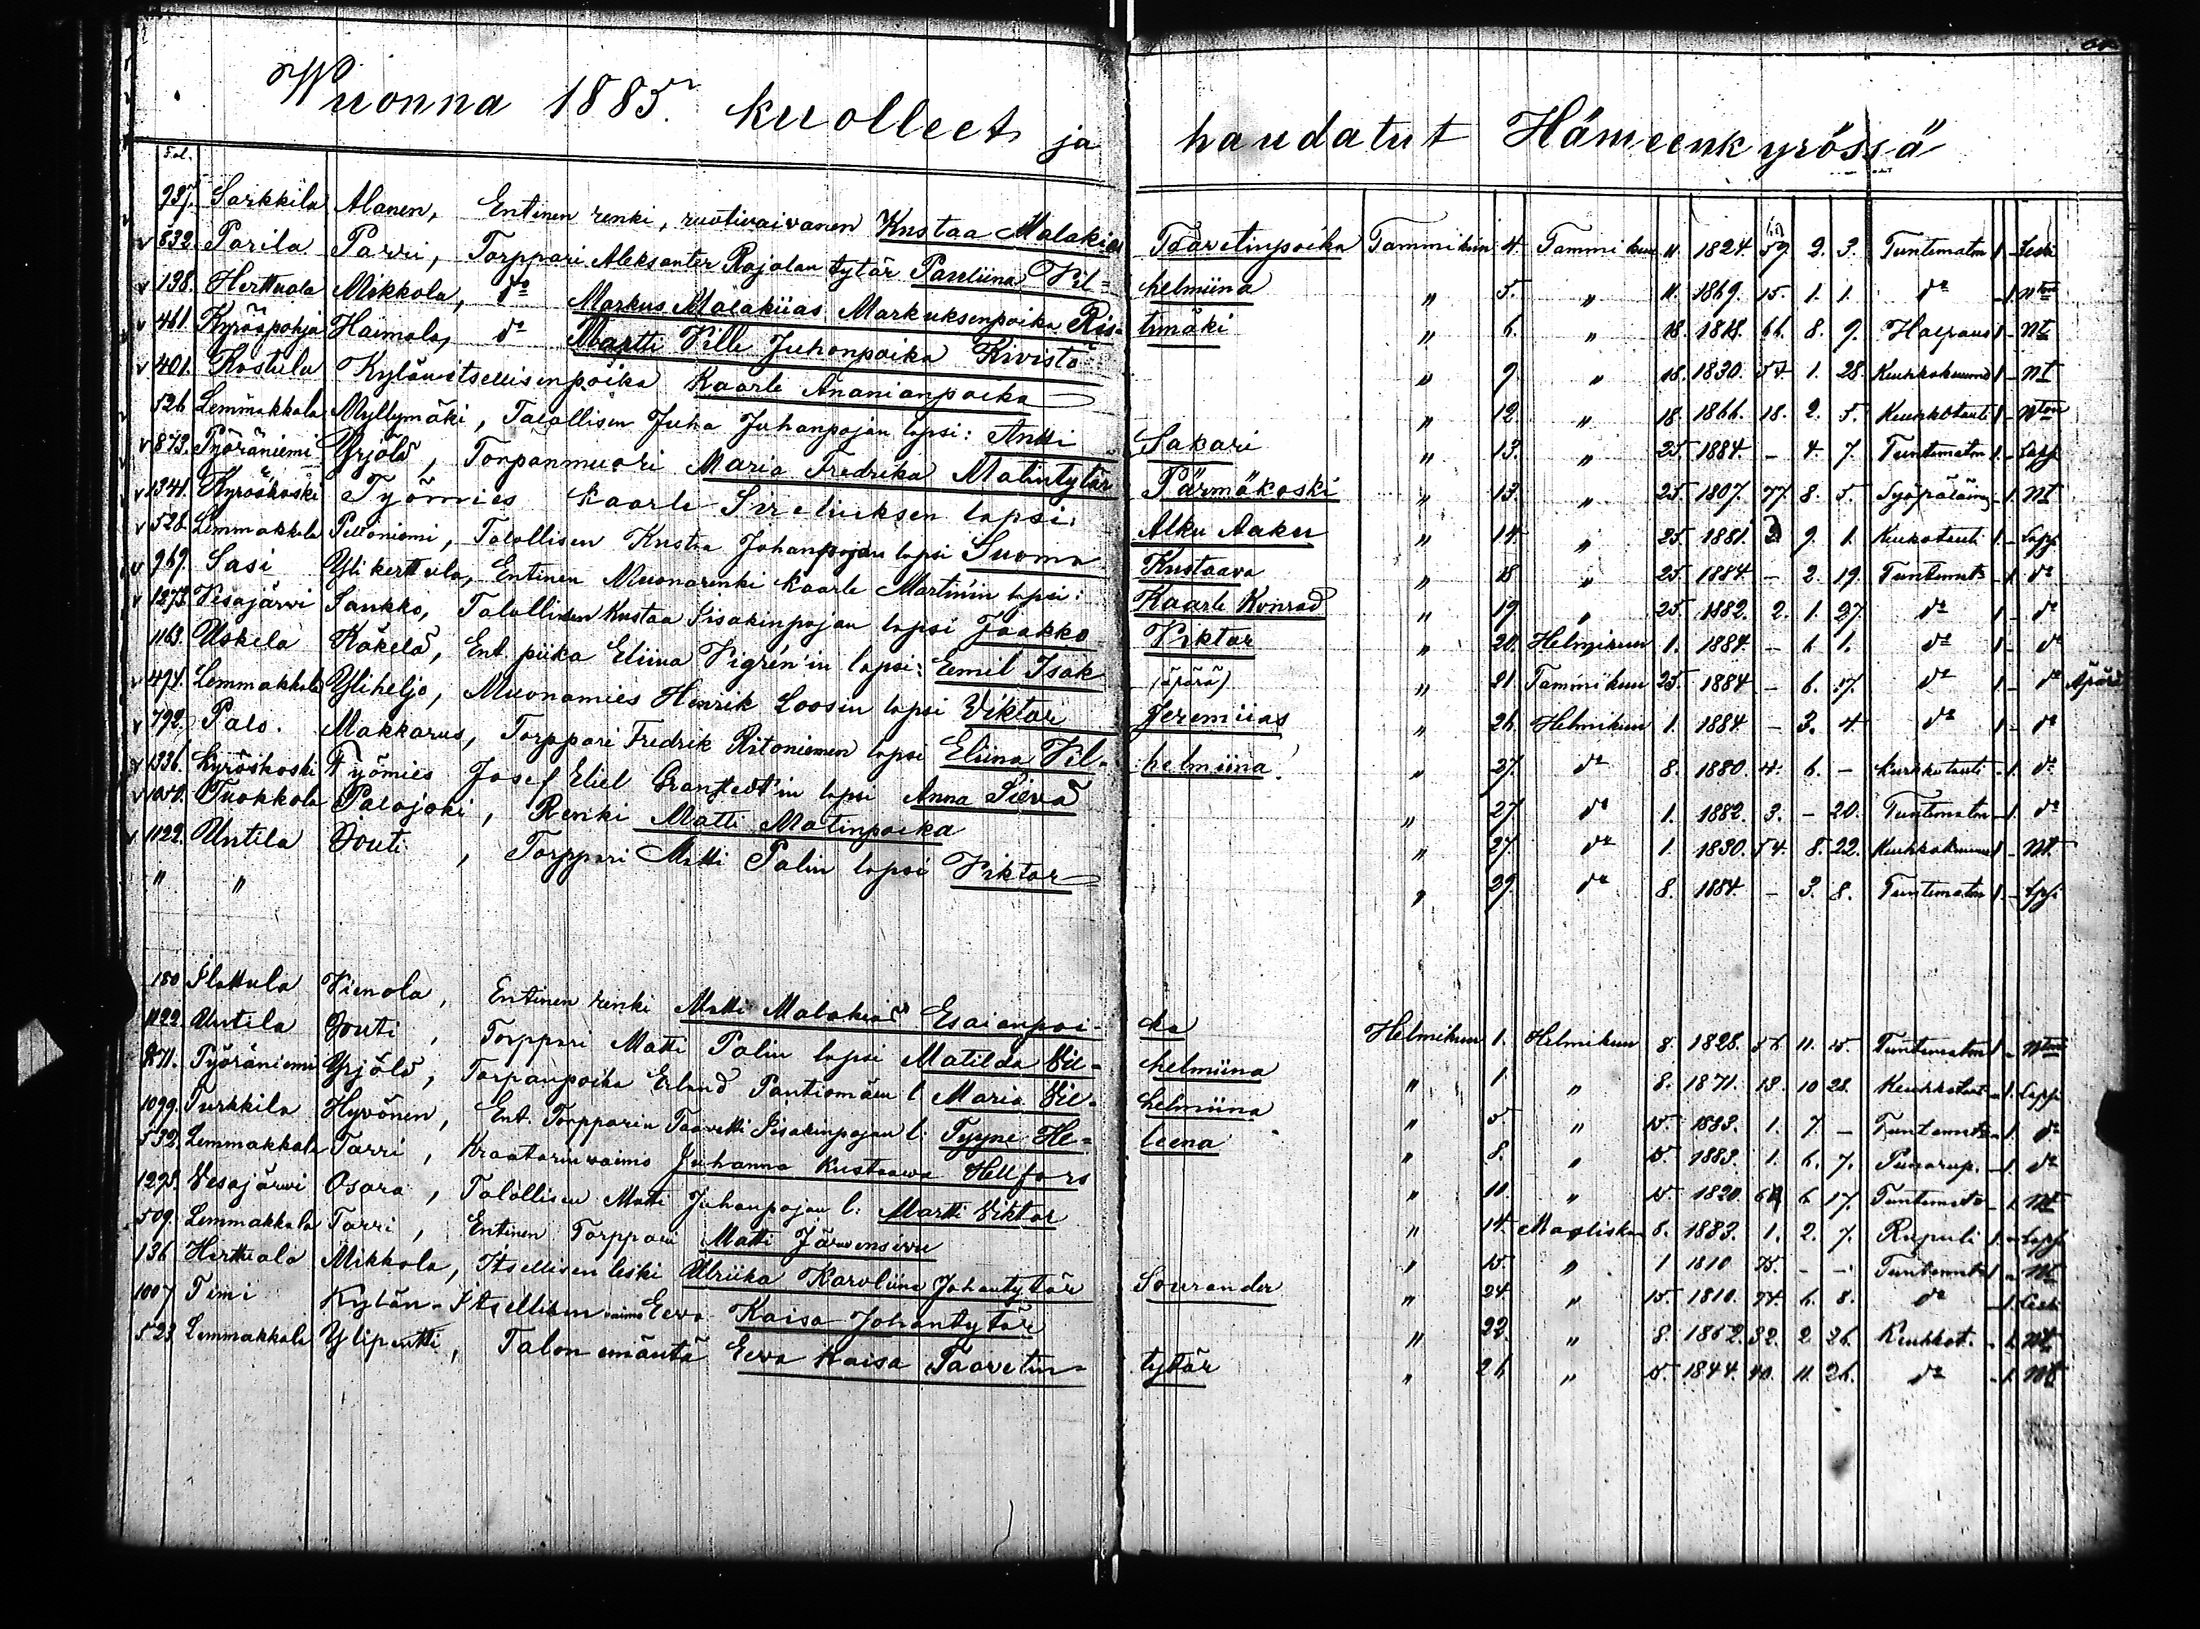 Wuonna 1885 kuolleet ja haudatut Hämeenkyrössä
Fol.
937. Sarkkila Alanen, Entinen renki, ruotivaivanen Kustaa Malakias Taavetinpoika Tammikun 4. Tammikuun 11. 1824. 2. 3. Tuntematon 1 - Leski
v 832. Parila Parri, Torppari Aleksanter Rajalan tytär Pauliina Vil= helmiina " 5. " 11. 1869. 15. 1. 1. do - 1.
v 138. Herttuala Mikkola, do Markus Malakiias Markuksenpoika Ris= timäki " 6. " 18. 1818. 66. 8. 9. Halvaus 1 - Nt
v 461. Kyröspohja Haimala, do Martti Ville Juhonpoika Kivistö " 9. " 18. 1830. 54. 1. 28. Keuhkokuume 1 - Nt
v 401. Kostula Kylänitsellisenpoika Kaarle Ananianpoika " 12. " 18. 1866. 18. 2. 5. Keuhkotauti 1 -
526. Lemmakkala Myllymäki, Talollisen Juha Juhanpojan lapsi: Antti Sakari " 13. " 25. 1884. - 4. 7. Tuntematon 1. - Lapsi
v 873. Pyöräniemi Yrjölä, Torpanmuori Maria Fredrika Matintytär Pärmäkoski " 13. " 25. 1807. 77. 8. 5. - 1. Nt
v 1341. Kyröskoski Työmies Kaarle Sireliuksen lapsi: Alku Aaku " 14. " 25. 1881. 3 9. 1. Keuhkotauti 1. - Lapsi
v 528. Lemmakkala Peltoniemi, Talollisen Kustaa Johanpojan lapsi Suoma Kustaava " 18 " 25. 1884. - 2. 19. - 1. do
v 969. Sasi Ylikerttula, Entinen Muonarenki Kaarle Martin'in lapsi: Kaarle Konrad " 19 " 25. 1882. 2. 1. 27. do 1. - do
v 1273. Vesajärvi Saukko, Talollisen Kustaa Iisakinpojan lapsi Jaakko Viktor " 20. Helmikuun 1. 1884. - 6 1. do 1 - do
1163. Uskela Käkelä, Ent. piika Eliina Vigrén'in lapsi: Eemil Isak (äpärä) " 21. Tammikuun 25. 1884 - 6. 17. do 1. - do Äpärä
v 494. Lemmakkala Yliheljo, Muonamies Henrik Loosin lapsi Viktor Jeremiias " 26. Helmikuun 1. 1884 - 3. 4. do 1 - do
v 792. Palo. Makkarus, Torppari Fredrik Ritoniemen lapsi Eliina Vil= helmiina " 27. do 8. 1880. 4. 6. - Keuhkotauti - 1. do
v 1336. Kyröskoski Työmies Josef Eliel Granstedt'in lapsi Anna Sievä " 27. do 1. 1882. 3. - 20. Tuntematon - 1. do
v Tuokkola Palojoki, Renki Matti Matinpoika " 27. do 1. 1830. 54. 8. 22. Keuhkokuume 1 - Nt.
v 1122. Untila Jouti, Torppari Matti Palin lapsi Viktor " 29. do 8. 1884. - 3. 8. Tuntematon 1. - Lapsi
" "
180 Flattula Vienola, Entinen renki Matti Malakias Esaianpoi- ka Helmikuun 1. Helmikuun 8. 1828. 56. 11. 15. Tuntematon 1 -
1122. Untila Jouti, Torppari Matti Palin lapsi Matilda Vil= helmiina " 1. " 8. 1871. 13. 10 28. Keuhkotauti - 1. Lapsi
871. Pyöräniemi Yrjölä, Torpanpoika Erland Pantiomäen l. Maria Vil= helmiina " 5. " 15. 1883. 1. 7. - - 1. do
1099. Turkkila Hyvönen, Ent. Torpparin Taavetti Iisakinpojan l. Tyyne He= leena " 8. " 15. 1883. 1. 6. 7. - 1. do
532. Lemmakkala Tarri, Kraatarinvaimo Juhanna Kustaava Hellfors " 11. " 15. 1820. 64 6 17. - 1. Nt
1298. Vesajärvi Osara, Talollisen Matti Juhanpojan l: Martti Viktor " 14. Maaliskuun 8. 1883. 1. 2. 7. Rupuli 1. - Lapsi
509. Lemmakkala Tarri, Entinen Torppari Matti Järvensivu " 15. " 1 1810 75. - - 1 - Nt
136 Herttuala Mikkola, Itsellisen leski Ulriika Karoliina Johantytär Sourander " 24 " 15. 1810. 74. 6. 8. do - 1. Leski
1007 Timi Kylän-Itsellisen vaimo Eeva Kaisa Johantytär " 22. " 8. 1862. 32. 2. 26. Keuhkot. - 1. Nt.
523. Lemmakkala Ylipentti, Talon emäntä Eeva Kaisa Taavetin= tytär " 26 " 15. 1844. 40. 11. 26. do - 1. Nt